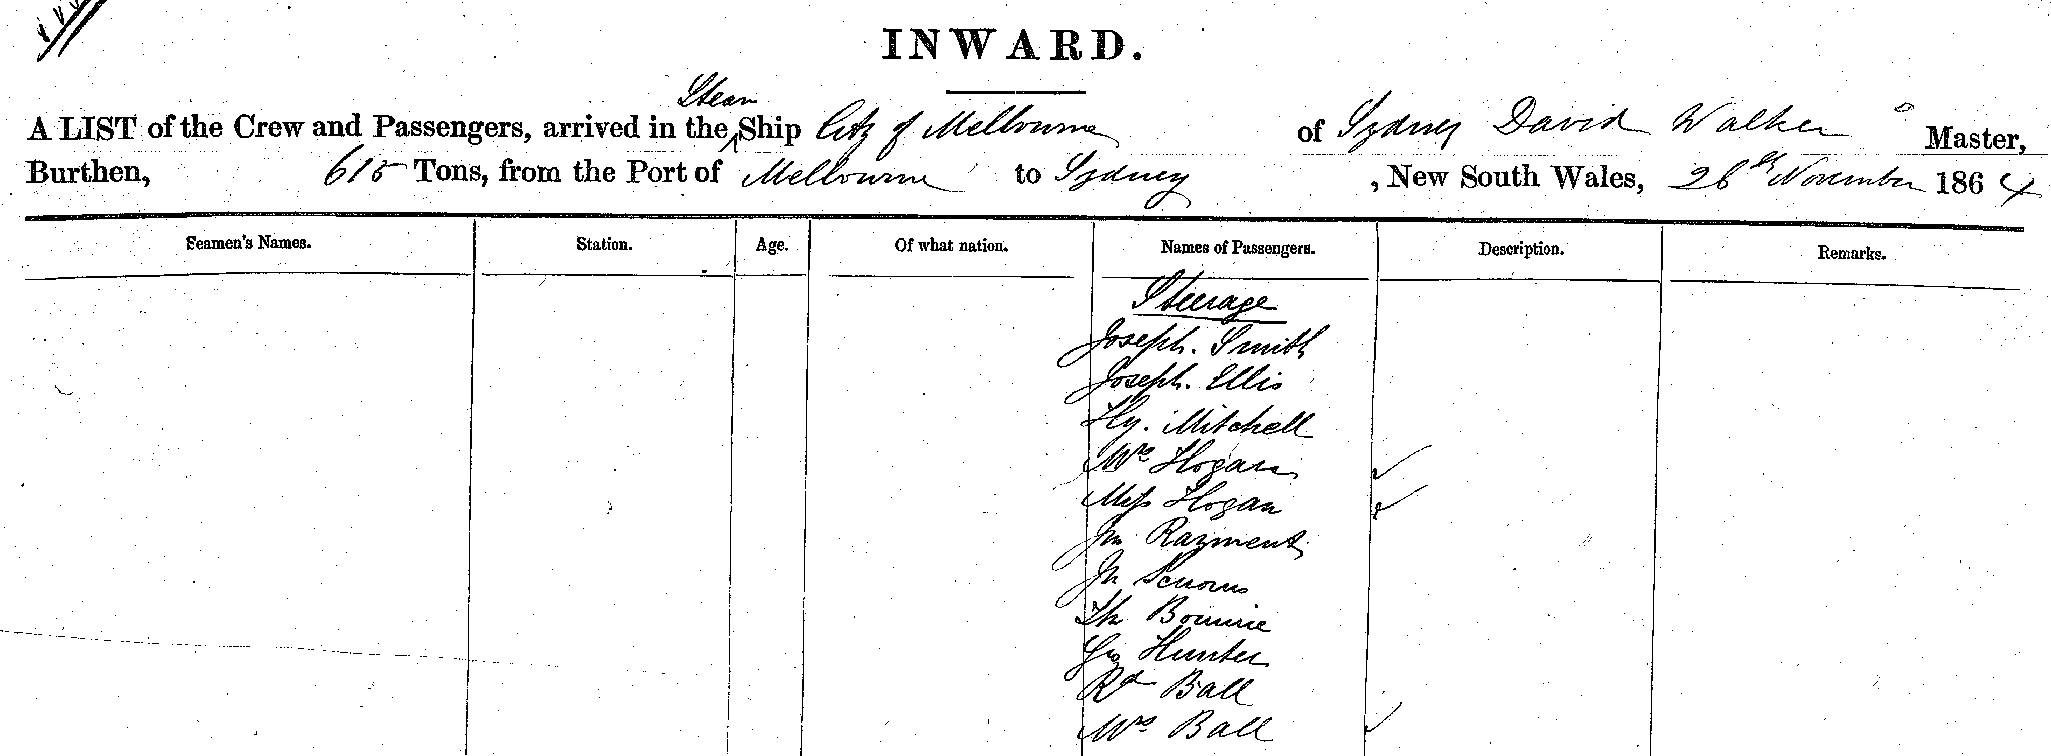 INWARD.
Steam
A LIST of the Crew and Passengers, arrived in the Ship City of Melbourne of Sydney David Walker Master,
Burthen, 615 Tons, from the Port of Melbourne to Sydney , New South Wales, 26th November 1864
Seamen's Names. Station. Age. Of what nation. Names of Passengers. Description. Remarks.
Steerage
Joseph. Smith
Joseph. Ellis
Hy. Mitchell
Mrs Hogan
Miss Hogan
Jn Rayment
Jn
Th Bournie
Geo Hunter
Rd Ball
Mrs Ball